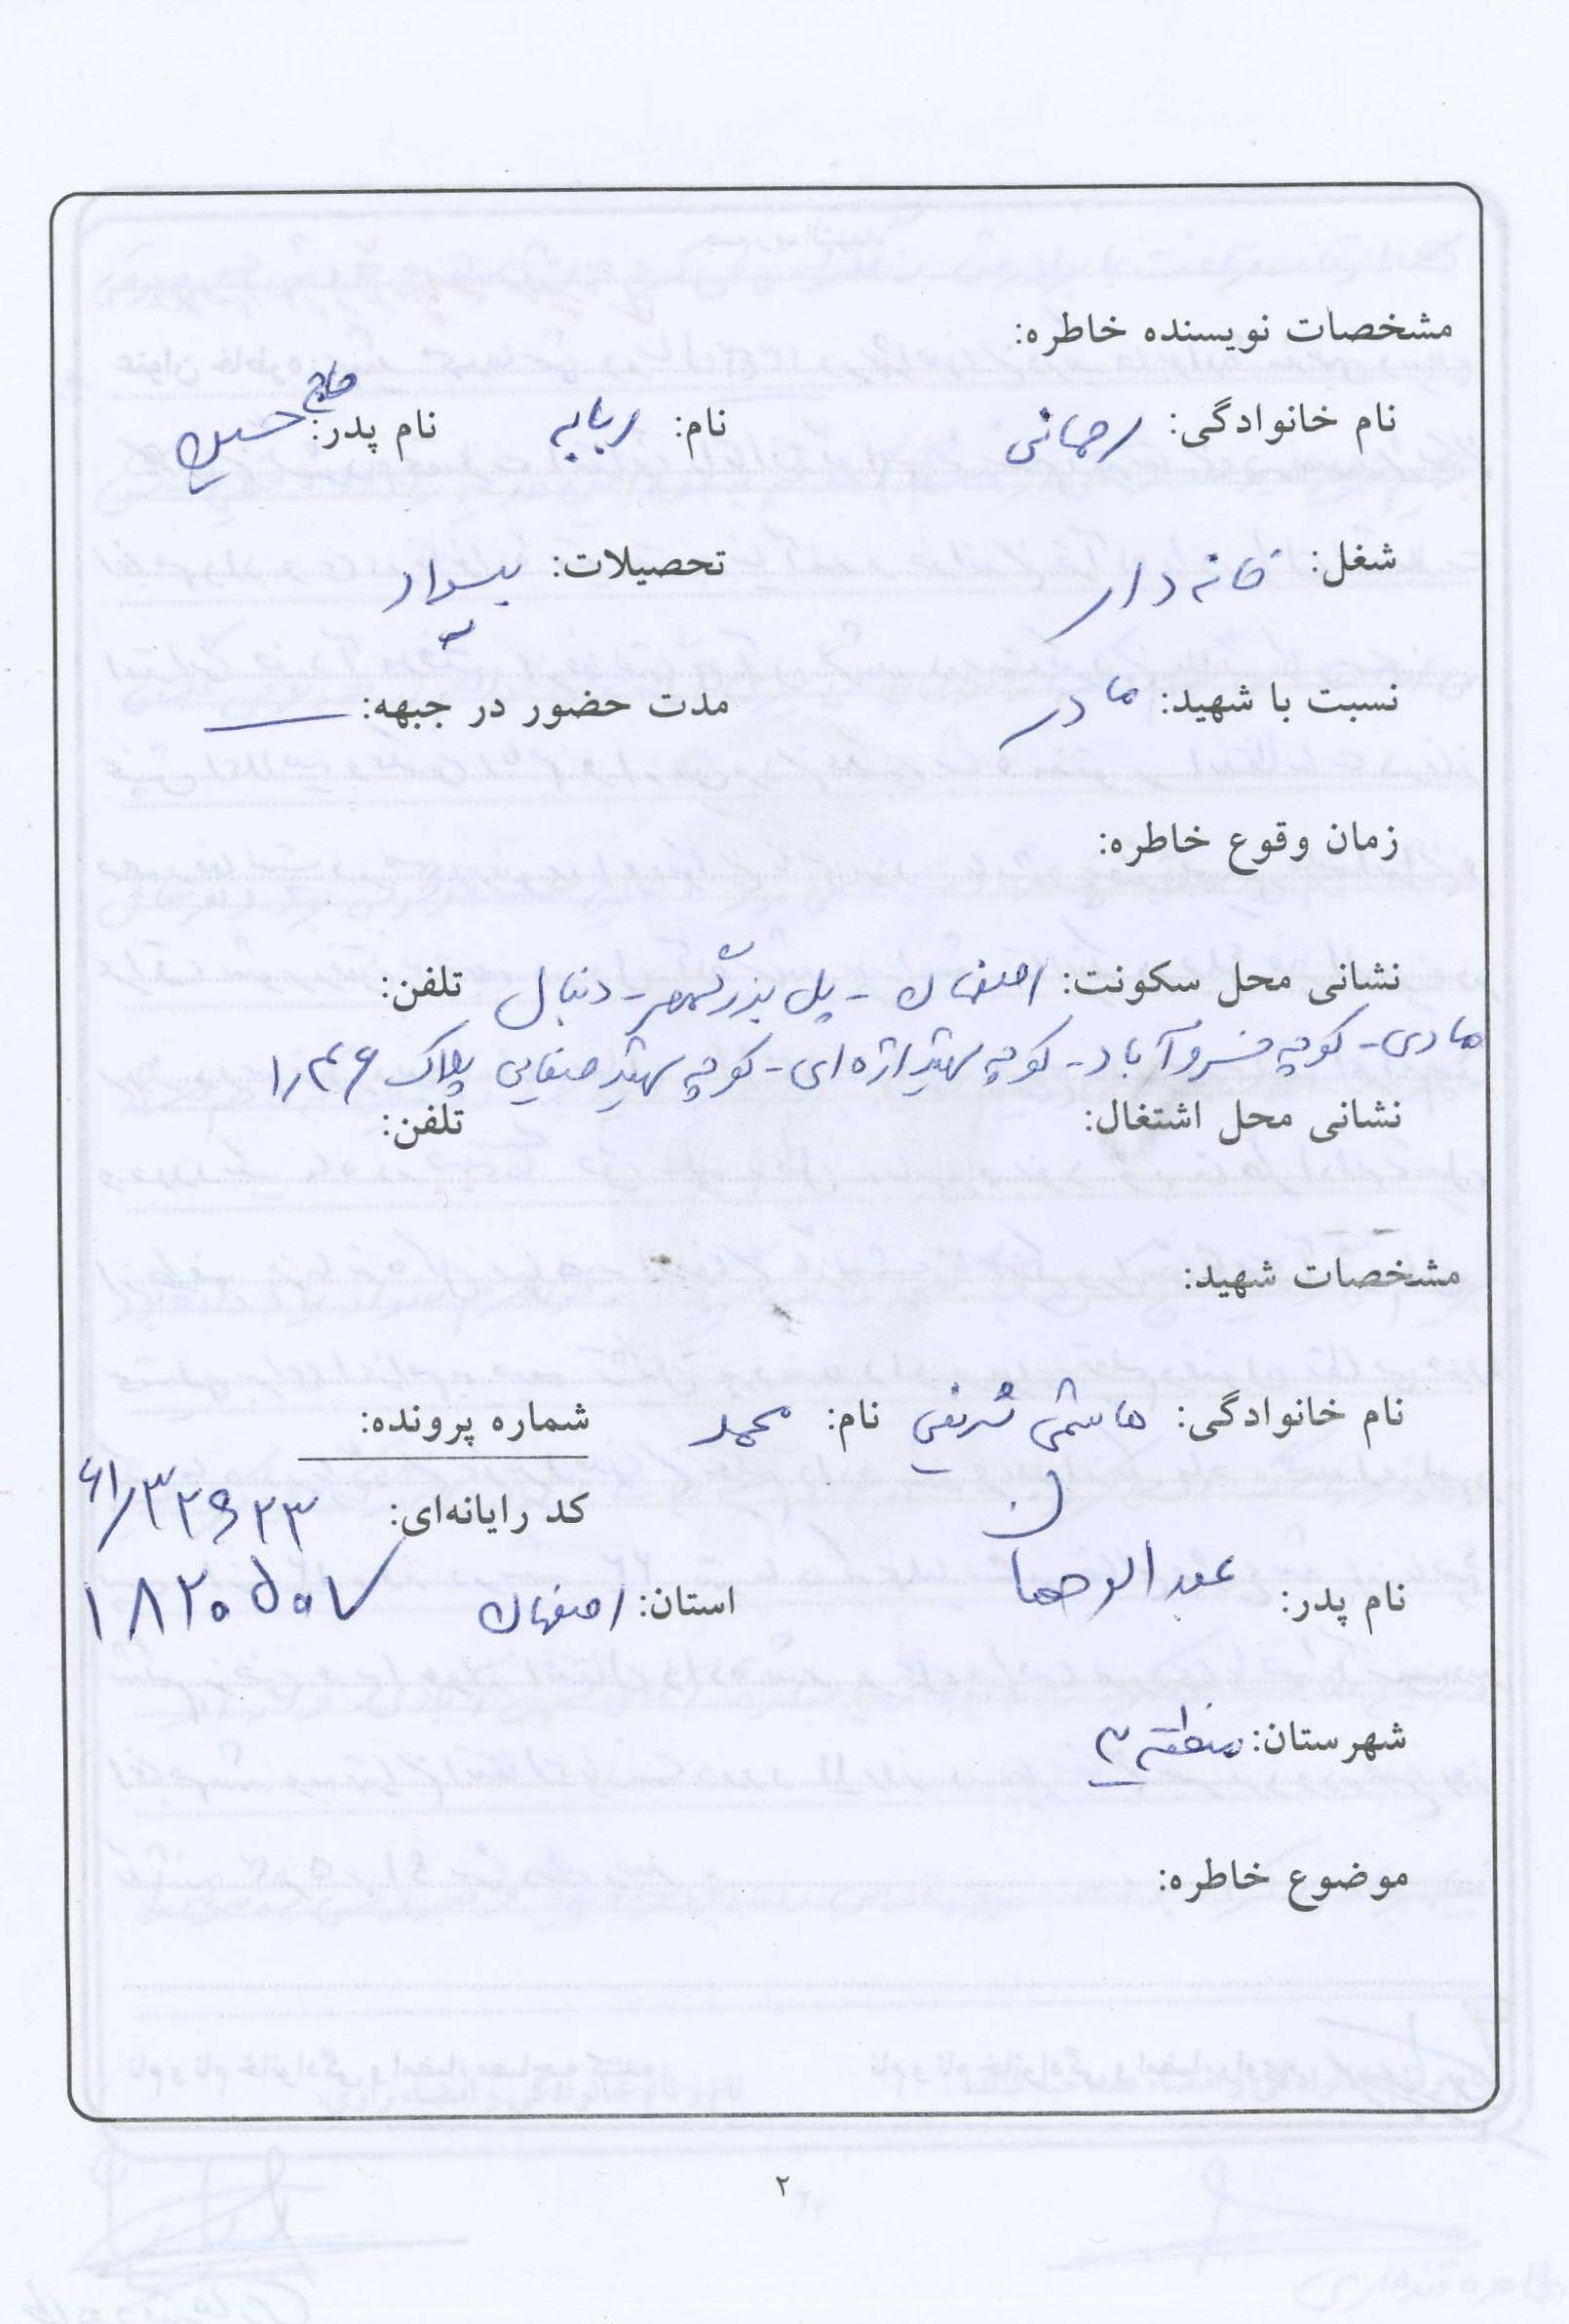 مشخصات نویسنده خاطره:
نام خانوادگی: رحمانی نام: ربابه نام پدر: حاج حسین
شغل: خانه دار تحصیلات: بیسواد
نسبت با شهید: مادر مدت حضور در جبهه: ـــ
زمان وقوع خاطره:
نشانی محل سکونت: اصفهان - پل بزرگمهر - دنبال تلفن:
مادی - کوچه خسروآباد - کوچه شهید اژه ای - کوچه شهید صفایی پلاک
نشانی محل اشتغال: تلفن:
مشخصات شهید:
نام خانوادگی: هاشمی شریفی نام: محمد شماره پرونده:
کد رایانه‌ای: ۶۱/۳۲۹۲۳
نام پدر: عبدالرحمان استان: اصفهان ۱۸۲۰۵۰۷
شهرستان: منطقه ۳
موضوع خاطره:
۲